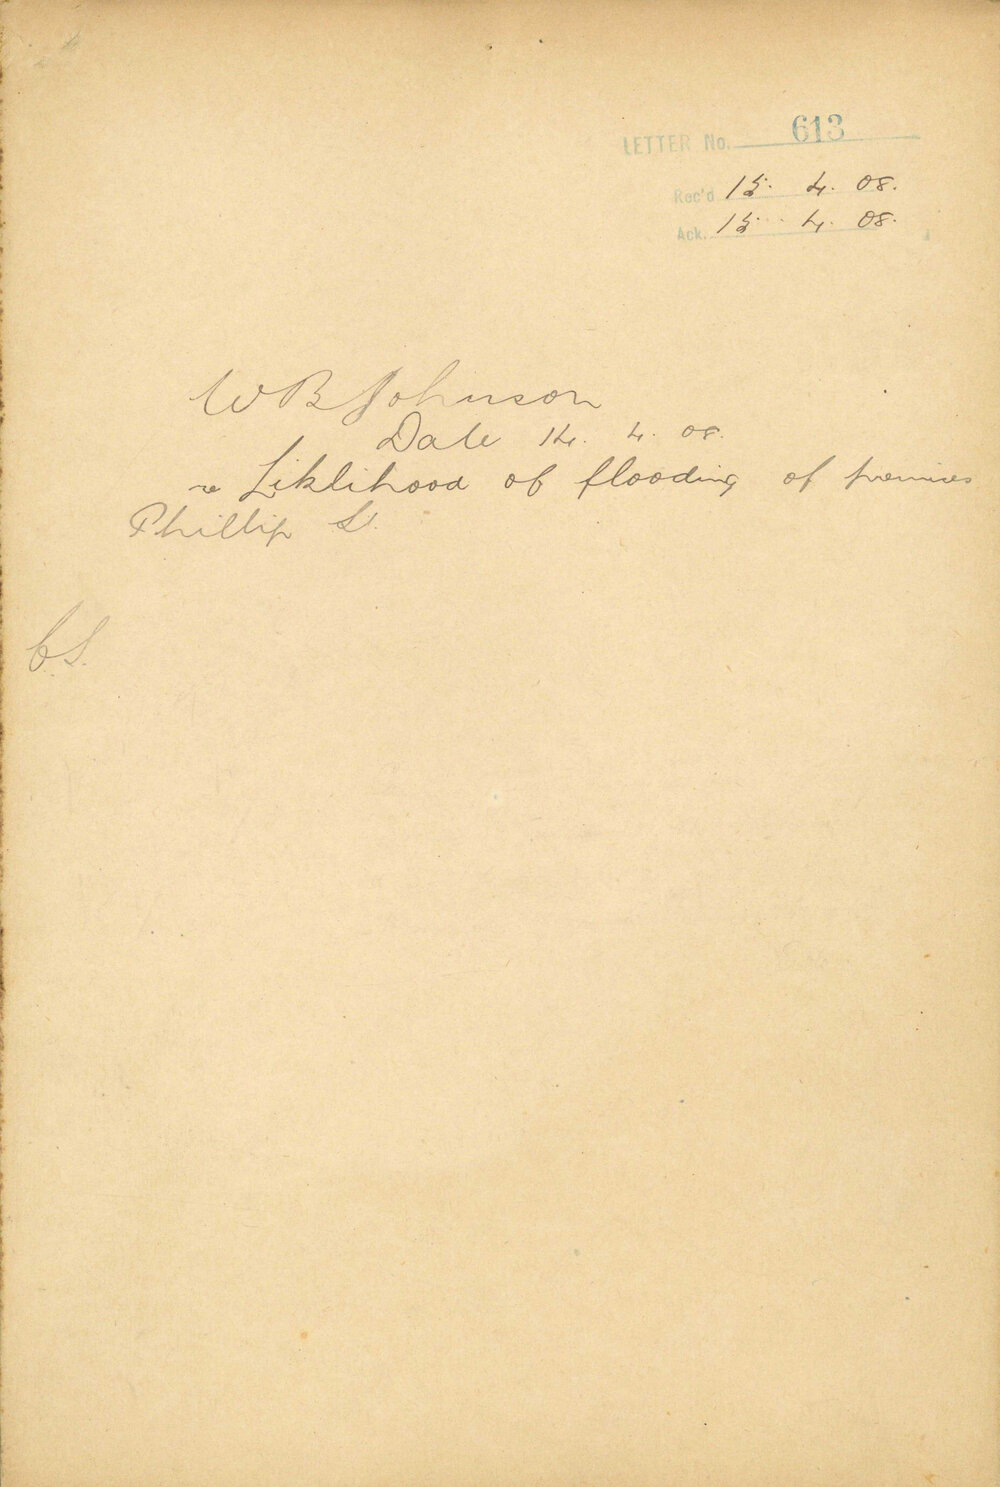 LETTER No. 613
Rec'd 15. 4. 08.
Ack. 15. 4. 08.
W B Johnson
Date 14. 4. 08.
re Liklihood of flooding of premises
Phillip St.
C.S.